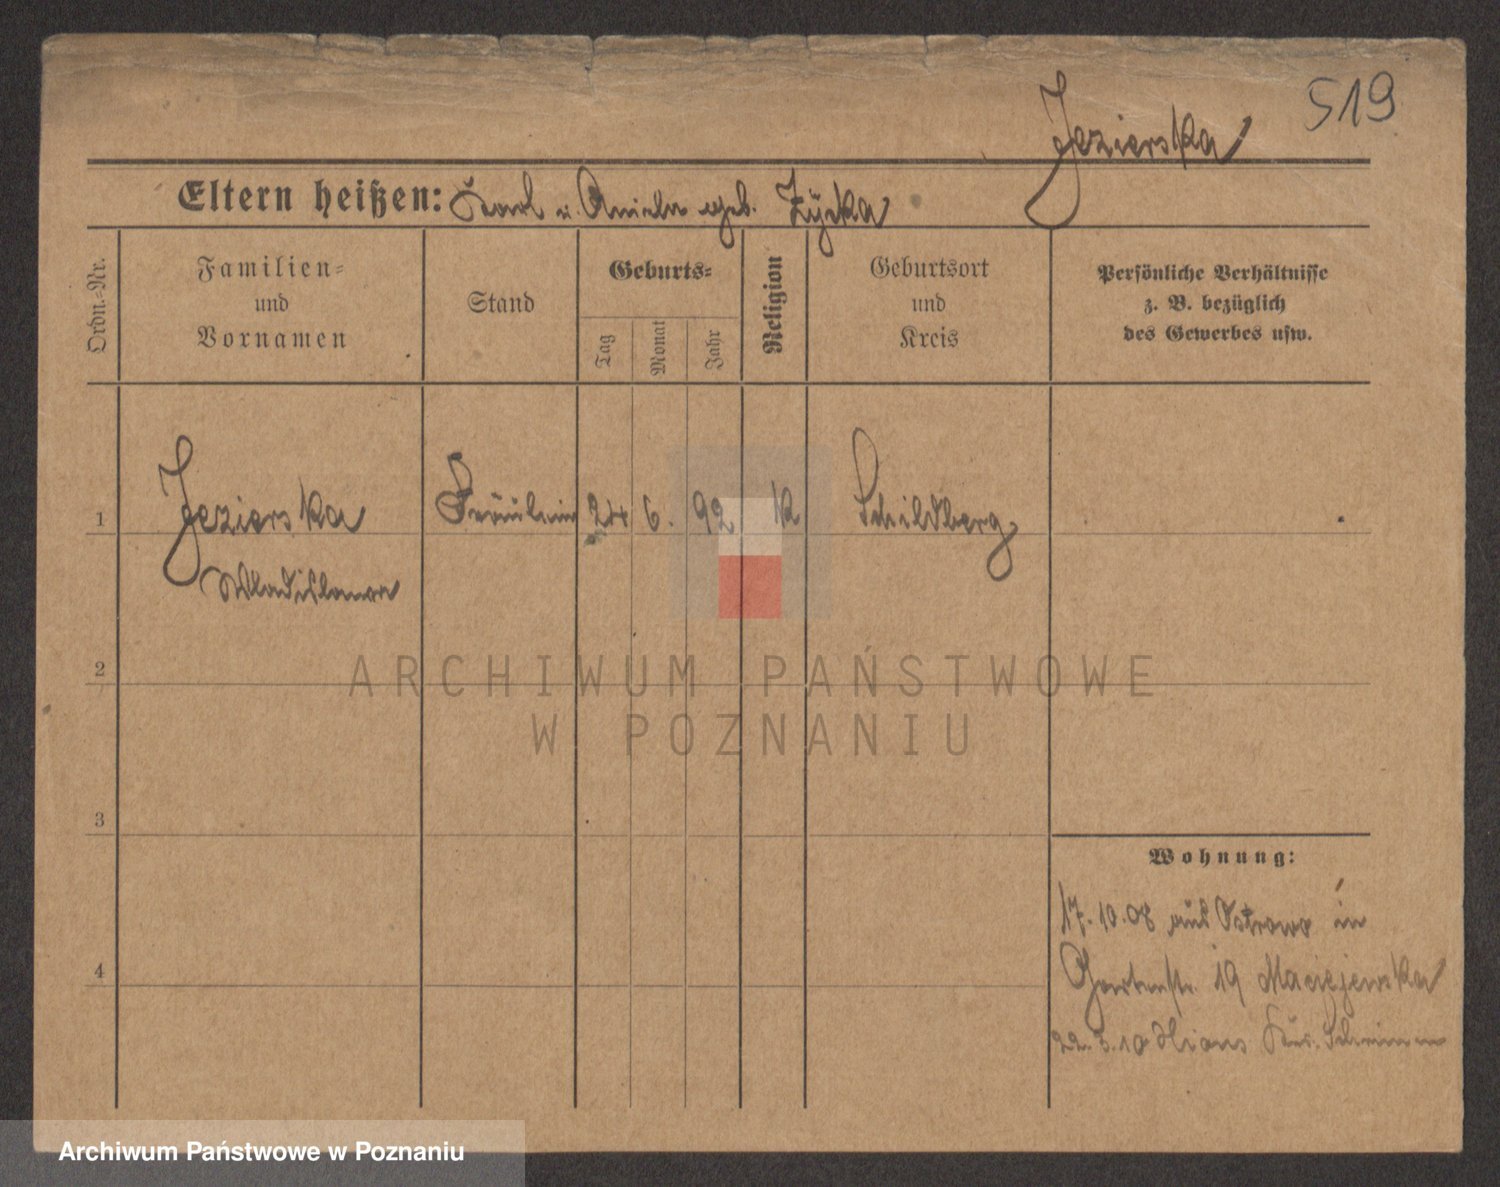 519
Jezierska
Eltern heißen: Karl u. Aniela geb. Zyska
Ordn.-Nr.
Familien-
und
Vornamen
Stand
Geburts-
Tag
Monat
Jahr
Religion
Geburtsort
und
Kreis
Persönliche Verhältnisse
z. B. bezüglich
des Gewerbes usw.
1
Jezierska
Wladislawa
Fräulein
24
6.
92
K
Schildberg
2
3
4
Wohnung:
17.10.08 aus Ostrowo in
Gartenstr. 19 Maciejewska
22.3.10 Xions Krs. Schrimm
ARCHIWUM PAŃSTWOWE
W POZNANIU
Archiwum Państwowe w Poznaniu